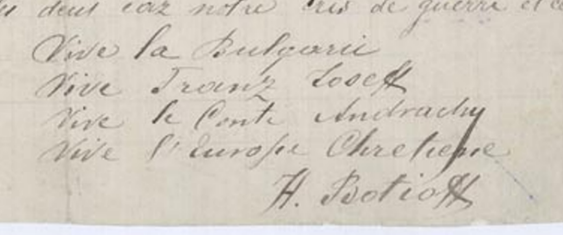 deus caz notre cris de guerre et c
Vive la Bulgarie
Vive Franz Joseff
Vive le Conte Andrachy
Vive l'Europe Chretiene
H. Botioff